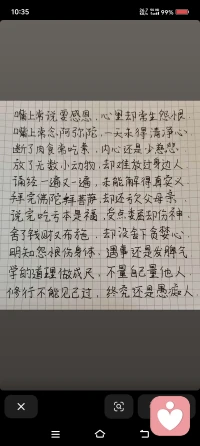 10:35
99%
嘴上常说要感恩，心里却常生怨恨
嘴上常念阿弥陀，一天未得清净心
断了肉食常吃素，内心还是少慈悲
放了无数小动物，却难放过身边人
诵经一遍又一遍，未能解得真实义
拜完佛陀拜菩萨，却还欺父母亲
说完吃亏本是福，受点委屈却伤神
舍了钱财又布施，却没舍下贪婪心
明知怨恨伤身体，遇事还是发脾气
学的道理做成尺，不量自己量他人
修行不能见己过，终究还是愚痴人